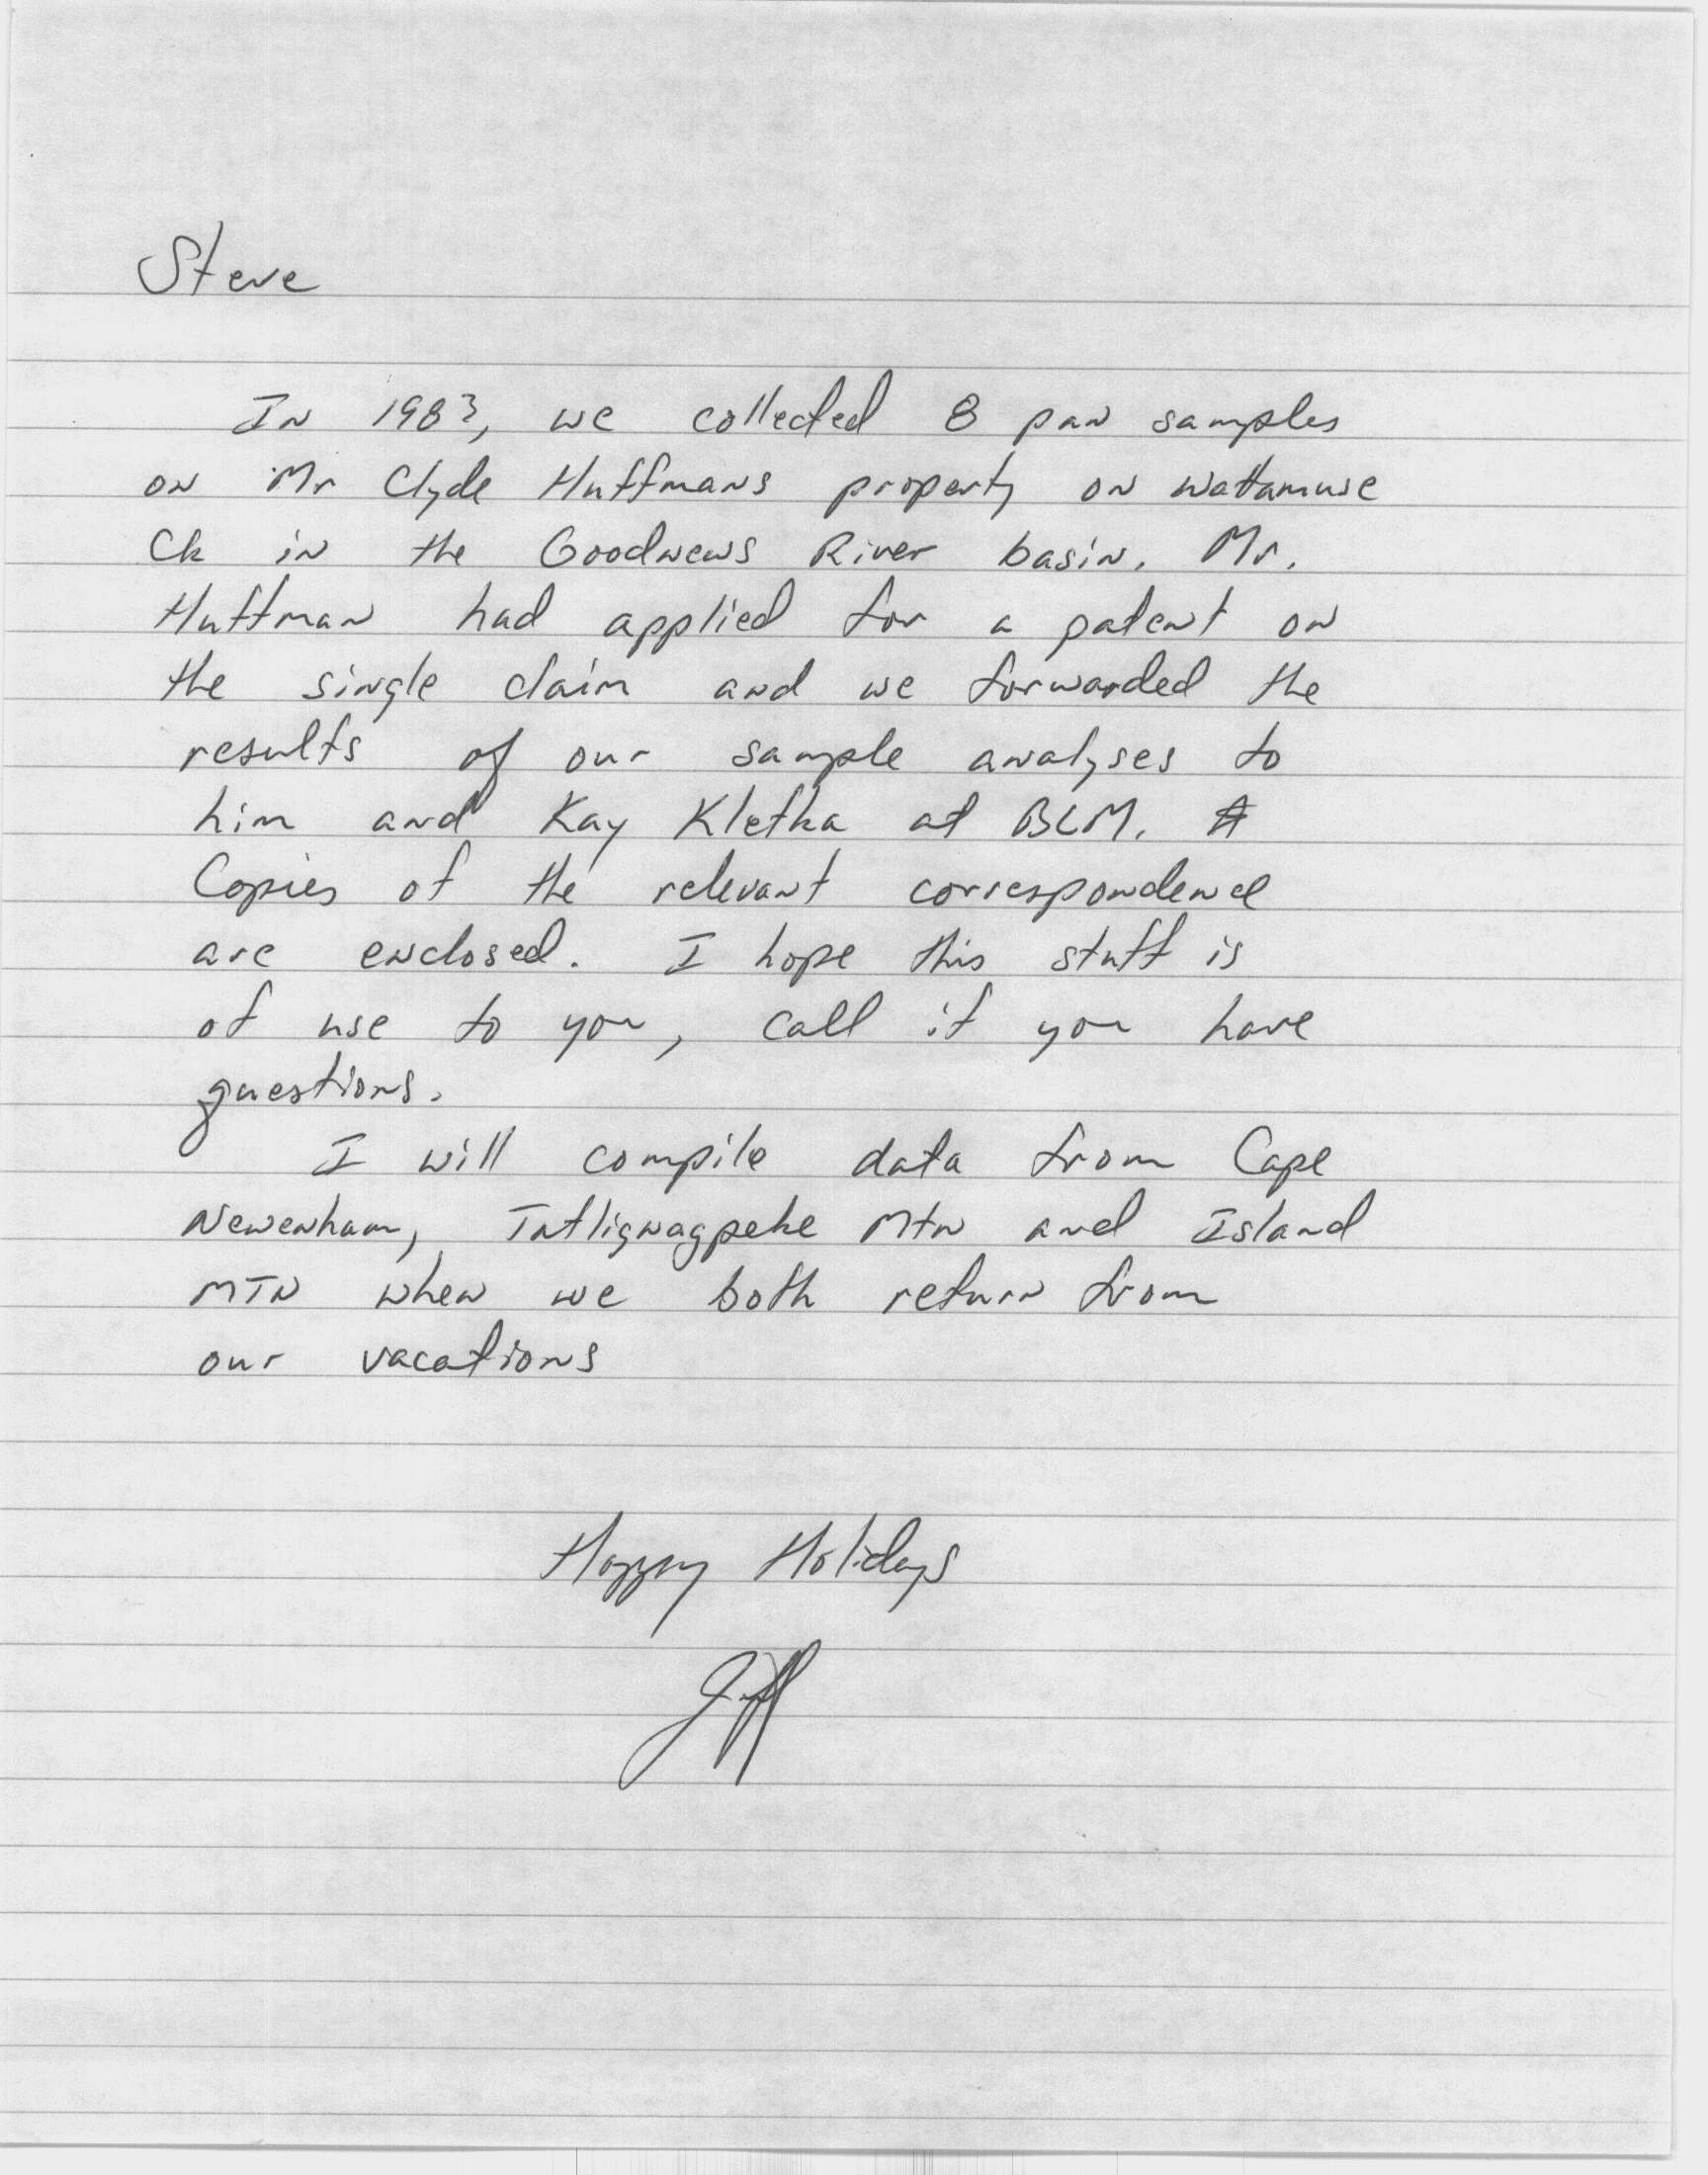 Steve
In 1983, we collected 8 pan samples
on Mr Clyde Huffmans property on Wattamuse
Ck in the Goodnews River basin. Mr.
Huffman had applied for a patent on
the single claim and we forwarded the
results of our sample analyses to
him and Kay Kletka at BLM.
Copies of the relevant correspondence
are enclosed. I hope this stuff is
of use to you, call if you have
questions.
I will compile data from Cape
Newenham, Mtn and Island
MTN when we both return from
our vacations
Happy Holidays
Jeff